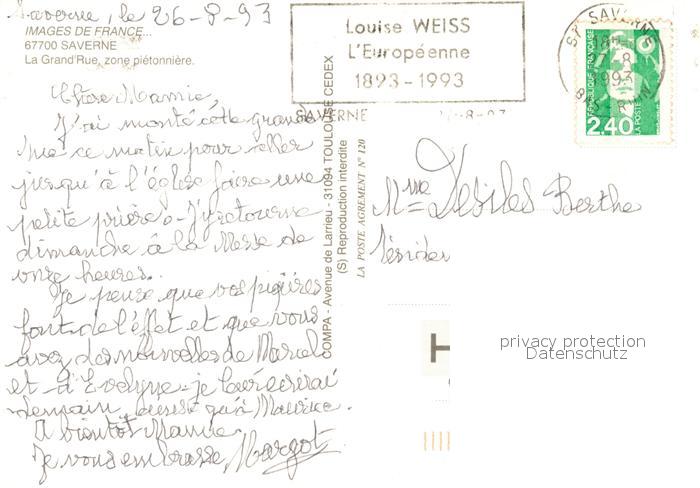 Saverne, le 26-8-93
IMAGES DE FRANCE...
67700 SAVERNE
La Grand'Rue, zone piétonnière.
Chère Mamie,
J'ai monté cette grande
rue ce matin pour aller
jusqu'à l'église faire une
petite prière. J'y retourne
dimanche à la Messe de
onze heures.
Je pense que vos piqûres
font de l'effet et que vous
avez des nouvelles de Marcel
et d'Evelyne. je leur écrirai
demain, aussi qu'à Maurice.
A bientôt Mamie.
Je vous embrasse, Margot
COMPA - Avenue de Larrieu - 31094 TOULOUSE CEDEX
(S) Reproduction interdite
LA POSTE AGREMENT N° 120
Louise WEISS
L'Européenne
1893-1993
SAVERNE
SAVERNE
1993
REPUBLIQUE FRANÇAISE
LA POSTE
2,40
Mme Desiles Berthe
Résiden
H
privacy protection
Datenschutz